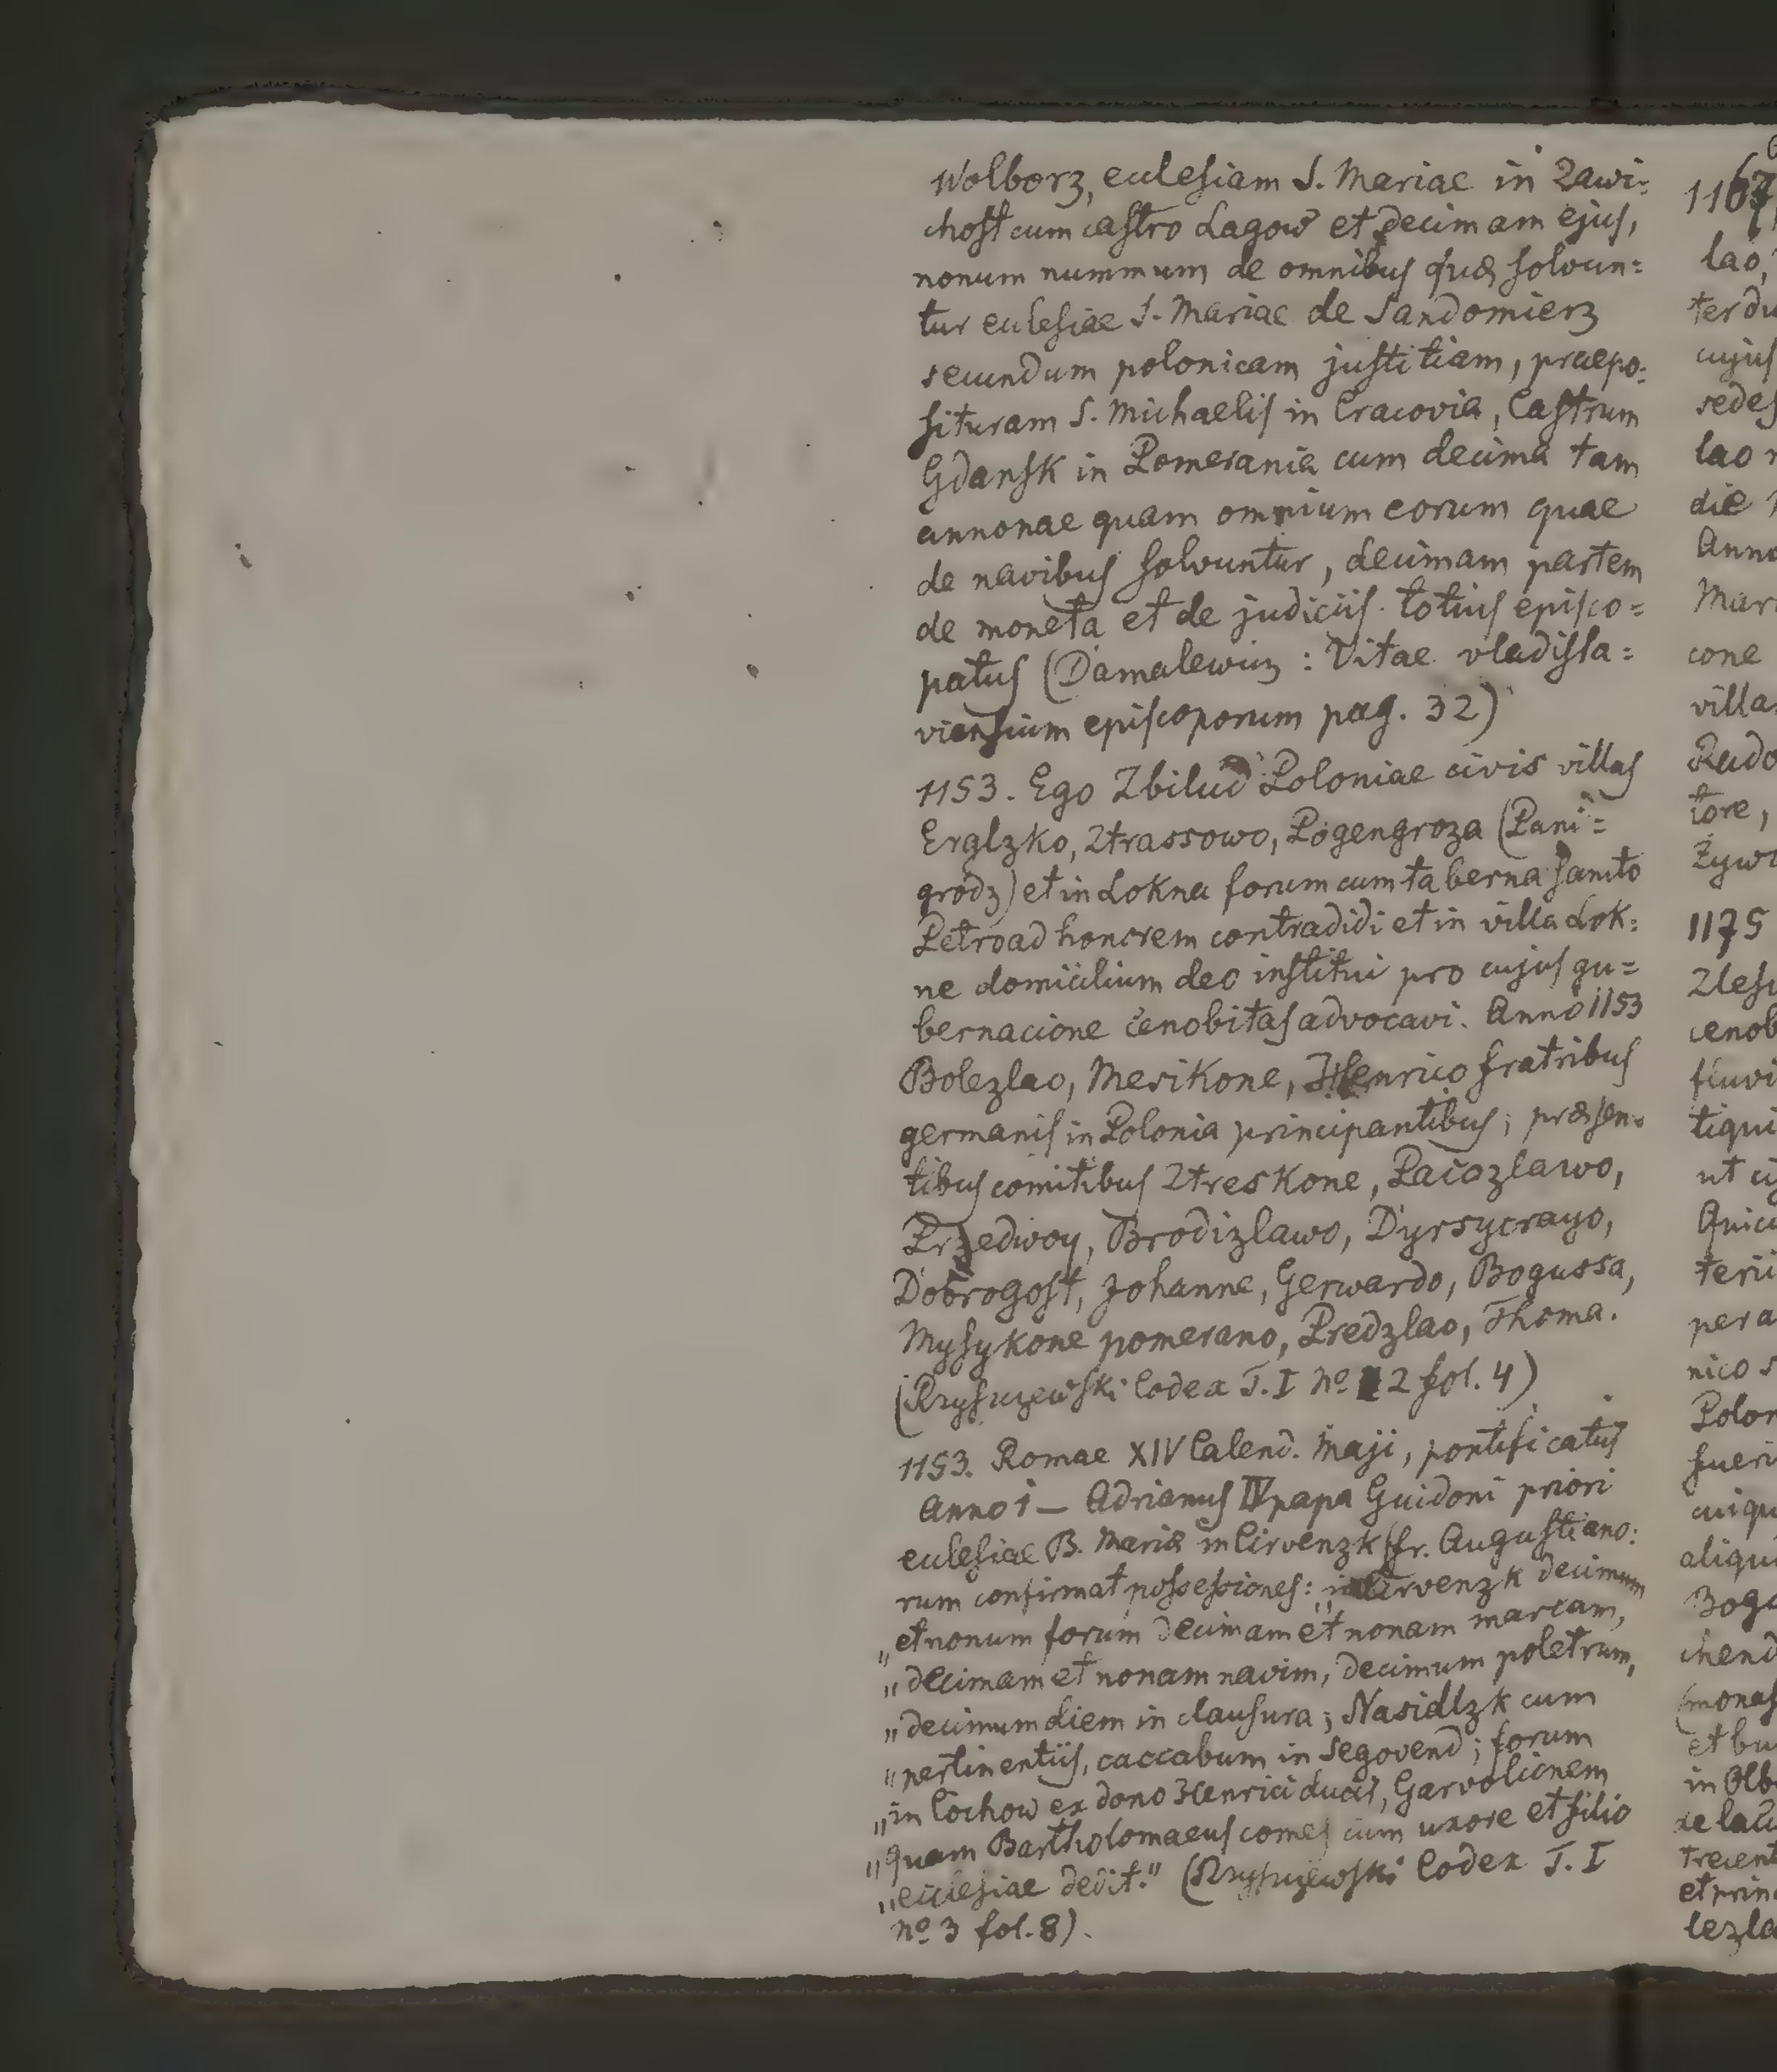 Wolborz, ecclesiam S. Mariae in Zawi=
chost cum castro Lagow et decimam ejus,
nonum nummum de omnibus quæ solvun=
tur ecclesiae S. Mariae de Sandomierz
secundum polonicam justitiam, praepo=
situram S. Michaelis in Cracovia, Castrum
Gdansk in Pomerania cum decima tam
annonae quam omnium eorum quae
de navibus solvuntur, decimam partem
de moneta et de judiciis totius episco=
patus (Damalewicz : Vitae vladisla=
viensium episcoporum pag. 32)
1153. Ego Zbilud Poloniae civis villas
Erglzko, Ztrassowo, Pogengroza (Pani=
grodz) et in Lokna forum cum taberna sancto
Petro ad honorem contradidi et in villa Lok=
ne domicilium deo institui pro cujus gu=
bernacione cenobitas advocavi. Anno 1153
Bolezlao, Mesikone, Henrico fratribus
germanis in Polonia principantibus; præsen=
tibus comitibus Ztreskone, Pacozlawo,
Przedwoy, Brodizlawo, Dyrsycrayo,
Dobrogost, Johanne, Gerwardo, Bogussa,
Mysykone pomerano, Predzlao, Thoma.
(Rzyszczewski Codex T. I No 2 fol. 4)
1153. Romae XIV Calend. Maji, pontificatus
Anno 1 — Adrianus IV papa Guidoni priori
ecclesiae B. Mariæ in Cirvenzk (fr. Augustiano=
rum confirmat possessiones: „in Cirvenzk decimum
„et nonum forum decimam et nonam marcam,
„decimam et nonam navim, decimum poletrum,
„decimum diem in clausura; Nasidlzk cum
„pertinentiis, caccabum in Segovend; forum
„in Cochow ex dono Henrici ducis, Garvolicnem
„quam Bartholomaeus comes cum uxore et filio
„ecclesiae dedit." (Rzyszczewski Codex T. I
No 3 fol. 8).
1167
lao,
terdu
cujus
sedes
lao
die
Anno
Mari
cone
villa
Rado
tore,
Żyw
1175
Zlesi
cenob
fluvi
tiqui
ut
Quicu
terii
per a
nico s
Polon
fueri
cuiqu
aliqui
Bogu
chend
(monas
et bu
in Olb
trecent
et prin
lezla